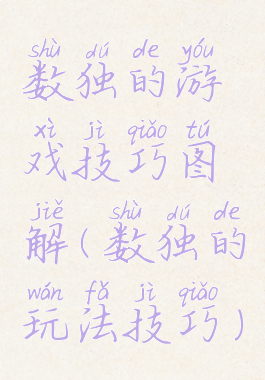 shù dú de yóu
数独的游
xì jì qiǎo tú
戏技巧图
jiě shù dú de
解(数独的
wán fǎ jì qiǎo
玩法技巧)